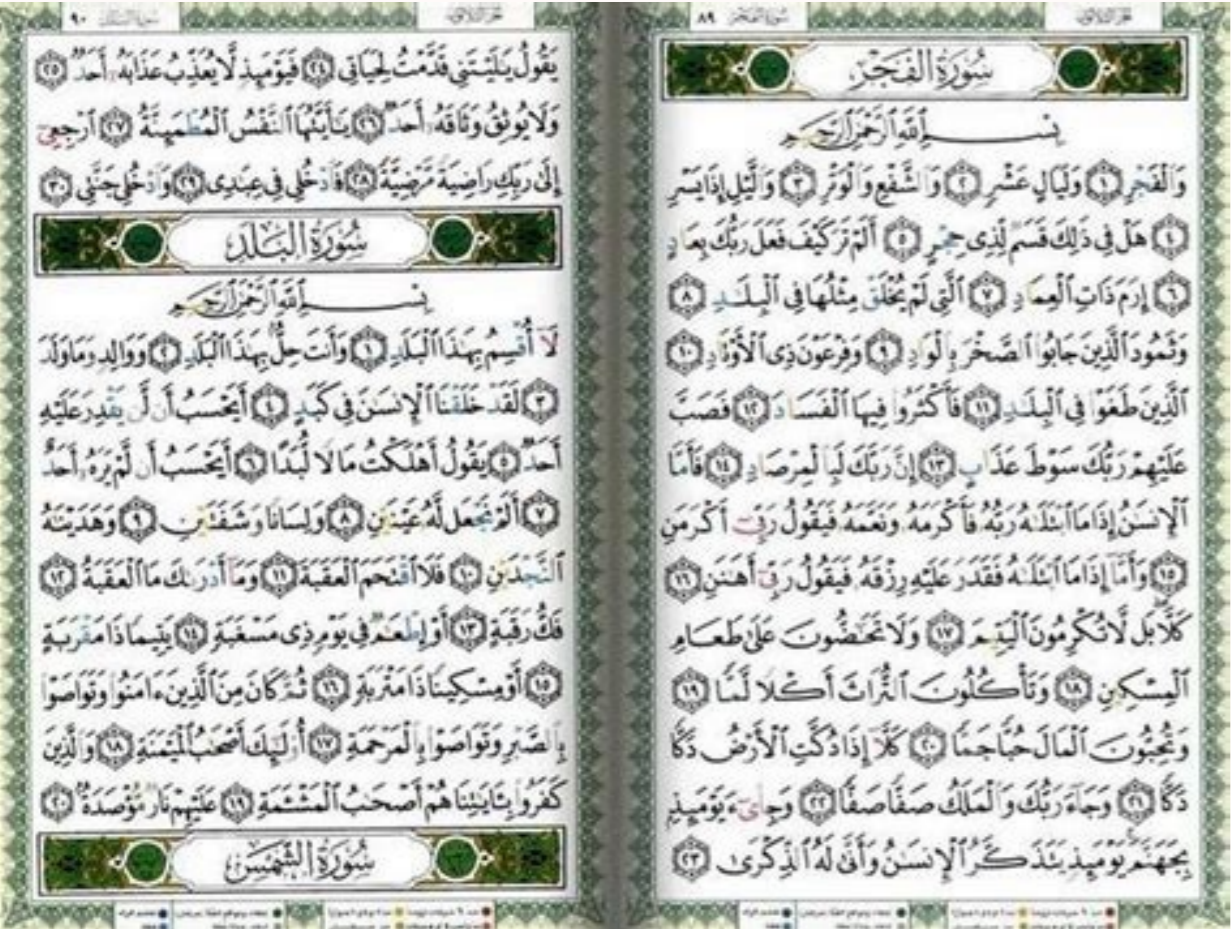 سورة الفجر ٨٩
سُورَةُ الفَجْرِ
بِسْمِ ٱللَّهِ ٱلرَّحْمَٰنِ ٱلرَّحِيمِ
وَٱلْفَجْرِ ١ وَلَيَالٍ عَشْرٍ ٢ وَٱلشَّفْعِ وَٱلْوَتْرِ ٣ وَٱلَّيْلِ إِذَا يَسْرِ
٤ هَلْ فِى ذَٰلِكَ قَسَمٌ لِّذِى حِجْرٍ ٥ أَلَمْ تَرَ كَيْفَ فَعَلَ رَبُّكَ بِعَادٍ
٦ إِرَمَ ذَاتِ ٱلْعِمَادِ ٧ ٱلَّتِى لَمْ يُخْلَقْ مِثْلُهَا فِى ٱلْبِلَٰدِ ٨
وَثَمُودَ ٱلَّذِينَ جَابُوا۟ ٱلصَّخْرَ بِٱلْوَادِ ٩ وَفِرْعَوْنَ ذِى ٱلْأَوْتَادِ ١٠
ٱلَّذِينَ طَغَوْا۟ فِى ٱلْبِلَٰدِ ١١ فَأَكْثَرُوا۟ فِيهَا ٱلْفَسَادَ ١٢ فَصَبَّ
عَلَيْهِمْ رَبُّكَ سَوْطَ عَذَابٍ ١٣ إِنَّ رَبَّكَ لَبِٱلْمِرْصَادِ ١٤ فَأَمَّا
ٱلْإِنسَٰنُ إِذَا مَا ٱبْتَلَىٰهُ رَبُّهُۥ فَأَكْرَمَهُۥ وَنَعَّمَهُۥ فَيَقُولُ رَبِّىٓ أَكْرَمَنِ
١٥ وَأَمَّآ إِذَا مَا ٱبْتَلَىٰهُ فَقَدَرَ عَلَيْهِ رِزْقَهُۥ فَيَقُولُ رَبِّىٓ أَهَٰنَنِ ١٦
كَلَّا بَل لَّا تُكْرِمُونَ ٱلْيَتِيمَ ١٧ وَلَا تَحَٰٓضُّونَ عَلَىٰ طَعَامِ
ٱلْمِسْكِينِ ١٨ وَتَأْكُلُونَ ٱلتُّرَاثَ أَكْلًا لَّمًّا ١٩
وَتُحِبُّونَ ٱلْمَالَ حُبًّا جَمًّا ٢٠ كَلَّآ إِذَا دُكَّتِ ٱلْأَرْضُ دَكًّا
دَكًّا ٢١ وَجَآءَ رَبُّكَ وَٱلْمَلَكُ صَفًّا صَفًّا ٢٢ وَجِا۟ىٓءَ يَوْمَئِذٍۭ
بِجَهَنَّمَ يَوْمَئِذٍ يَتَذَكَّرُ ٱلْإِنسَٰنُ وَأَنَّىٰ لَهُ ٱلذِّكْرَىٰ ٢٣
٩٠
يَقُولُ يَٰلَيْتَنِى قَدَّمْتُ لِحَيَاتِى ٢٤ فَيَوْمَئِذٍ لَّا يُعَذِّبُ عَذَابَهُۥٓ أَحَدٌ ٢٥
وَلَا يُوثِقُ وَثَاقَهُۥٓ أَحَدٌ ٢٦ يَٰٓأَيَّتُهَا ٱلنَّفْسُ ٱلْمُطْمَئِنَّةُ ٢٧ ٱرْجِعِىٓ
إِلَىٰ رَبِّكِ رَاضِيَةً مَّرْضِيَّةً ٢٨ فَٱدْخُلِى فِى عِبَٰدِى ٢٩ وَٱدْخُلِى جَنَّتِى ٣٠
سُورَةُ البَلَدِ
بِسْمِ ٱللَّهِ ٱلرَّحْمَٰنِ ٱلرَّحِيمِ
لَآ أُقْسِمُ بِهَٰذَا ٱلْبَلَدِ ١ وَأَنتَ حِلٌّۢ بِهَٰذَا ٱلْبَلَدِ ٢ وَوَالِدٍ وَمَا وَلَدَ
٣ لَقَدْ خَلَقْنَا ٱلْإِنسَٰنَ فِى كَبَدٍ ٤ أَيَحْسَبُ أَن لَّن يَقْدِرَ عَلَيْهِ
أَحَدٌ ٥ يَقُولُ أَهْلَكْتُ مَالًا لُّبَدًا ٦ أَيَحْسَبُ أَن لَّمْ يَرَهُۥٓ أَحَدٌ
٧ أَلَمْ نَجْعَل لَّهُۥ عَيْنَيْنِ ٨ وَلِسَانًا وَشَفَتَيْنِ ٩ وَهَدَيْنَٰهُ
ٱلنَّجْدَيْنِ ١٠ فَلَا ٱقْتَحَمَ ٱلْعَقَبَةَ ١١ وَمَآ أَدْرَىٰكَ مَا ٱلْعَقَبَةُ ١٢
فَكُّ رَقَبَةٍ ١٣ أَوْ إِطْعَٰمٌ فِى يَوْمٍ ذِى مَسْغَبَةٍ ١٤ يَتِيمًا ذَا مَقْرَبَةٍ
١٥ أَوْ مِسْكِينًا ذَا مَتْرَبَةٍ ١٦ ثُمَّ كَانَ مِنَ ٱلَّذِينَ ءَامَنُوا۟ وَتَوَاصَوْا۟
بِٱلصَّبْرِ وَتَوَاصَوْا۟ بِٱلْمَرْحَمَةِ ١٧ أُو۟لَٰٓئِكَ أَصْحَٰبُ ٱلْمَيْمَنَةِ ١٨ وَٱلَّذِينَ
كَفَرُوا۟ بِـَٔايَٰتِنَا هُمْ أَصْحَٰبُ ٱلْمَشْـَٔمَةِ ١٩ عَلَيْهِمْ نَارٌ مُّؤْصَدَةٌۢ ٢٠
سُورَةُ الشَّمْسِ